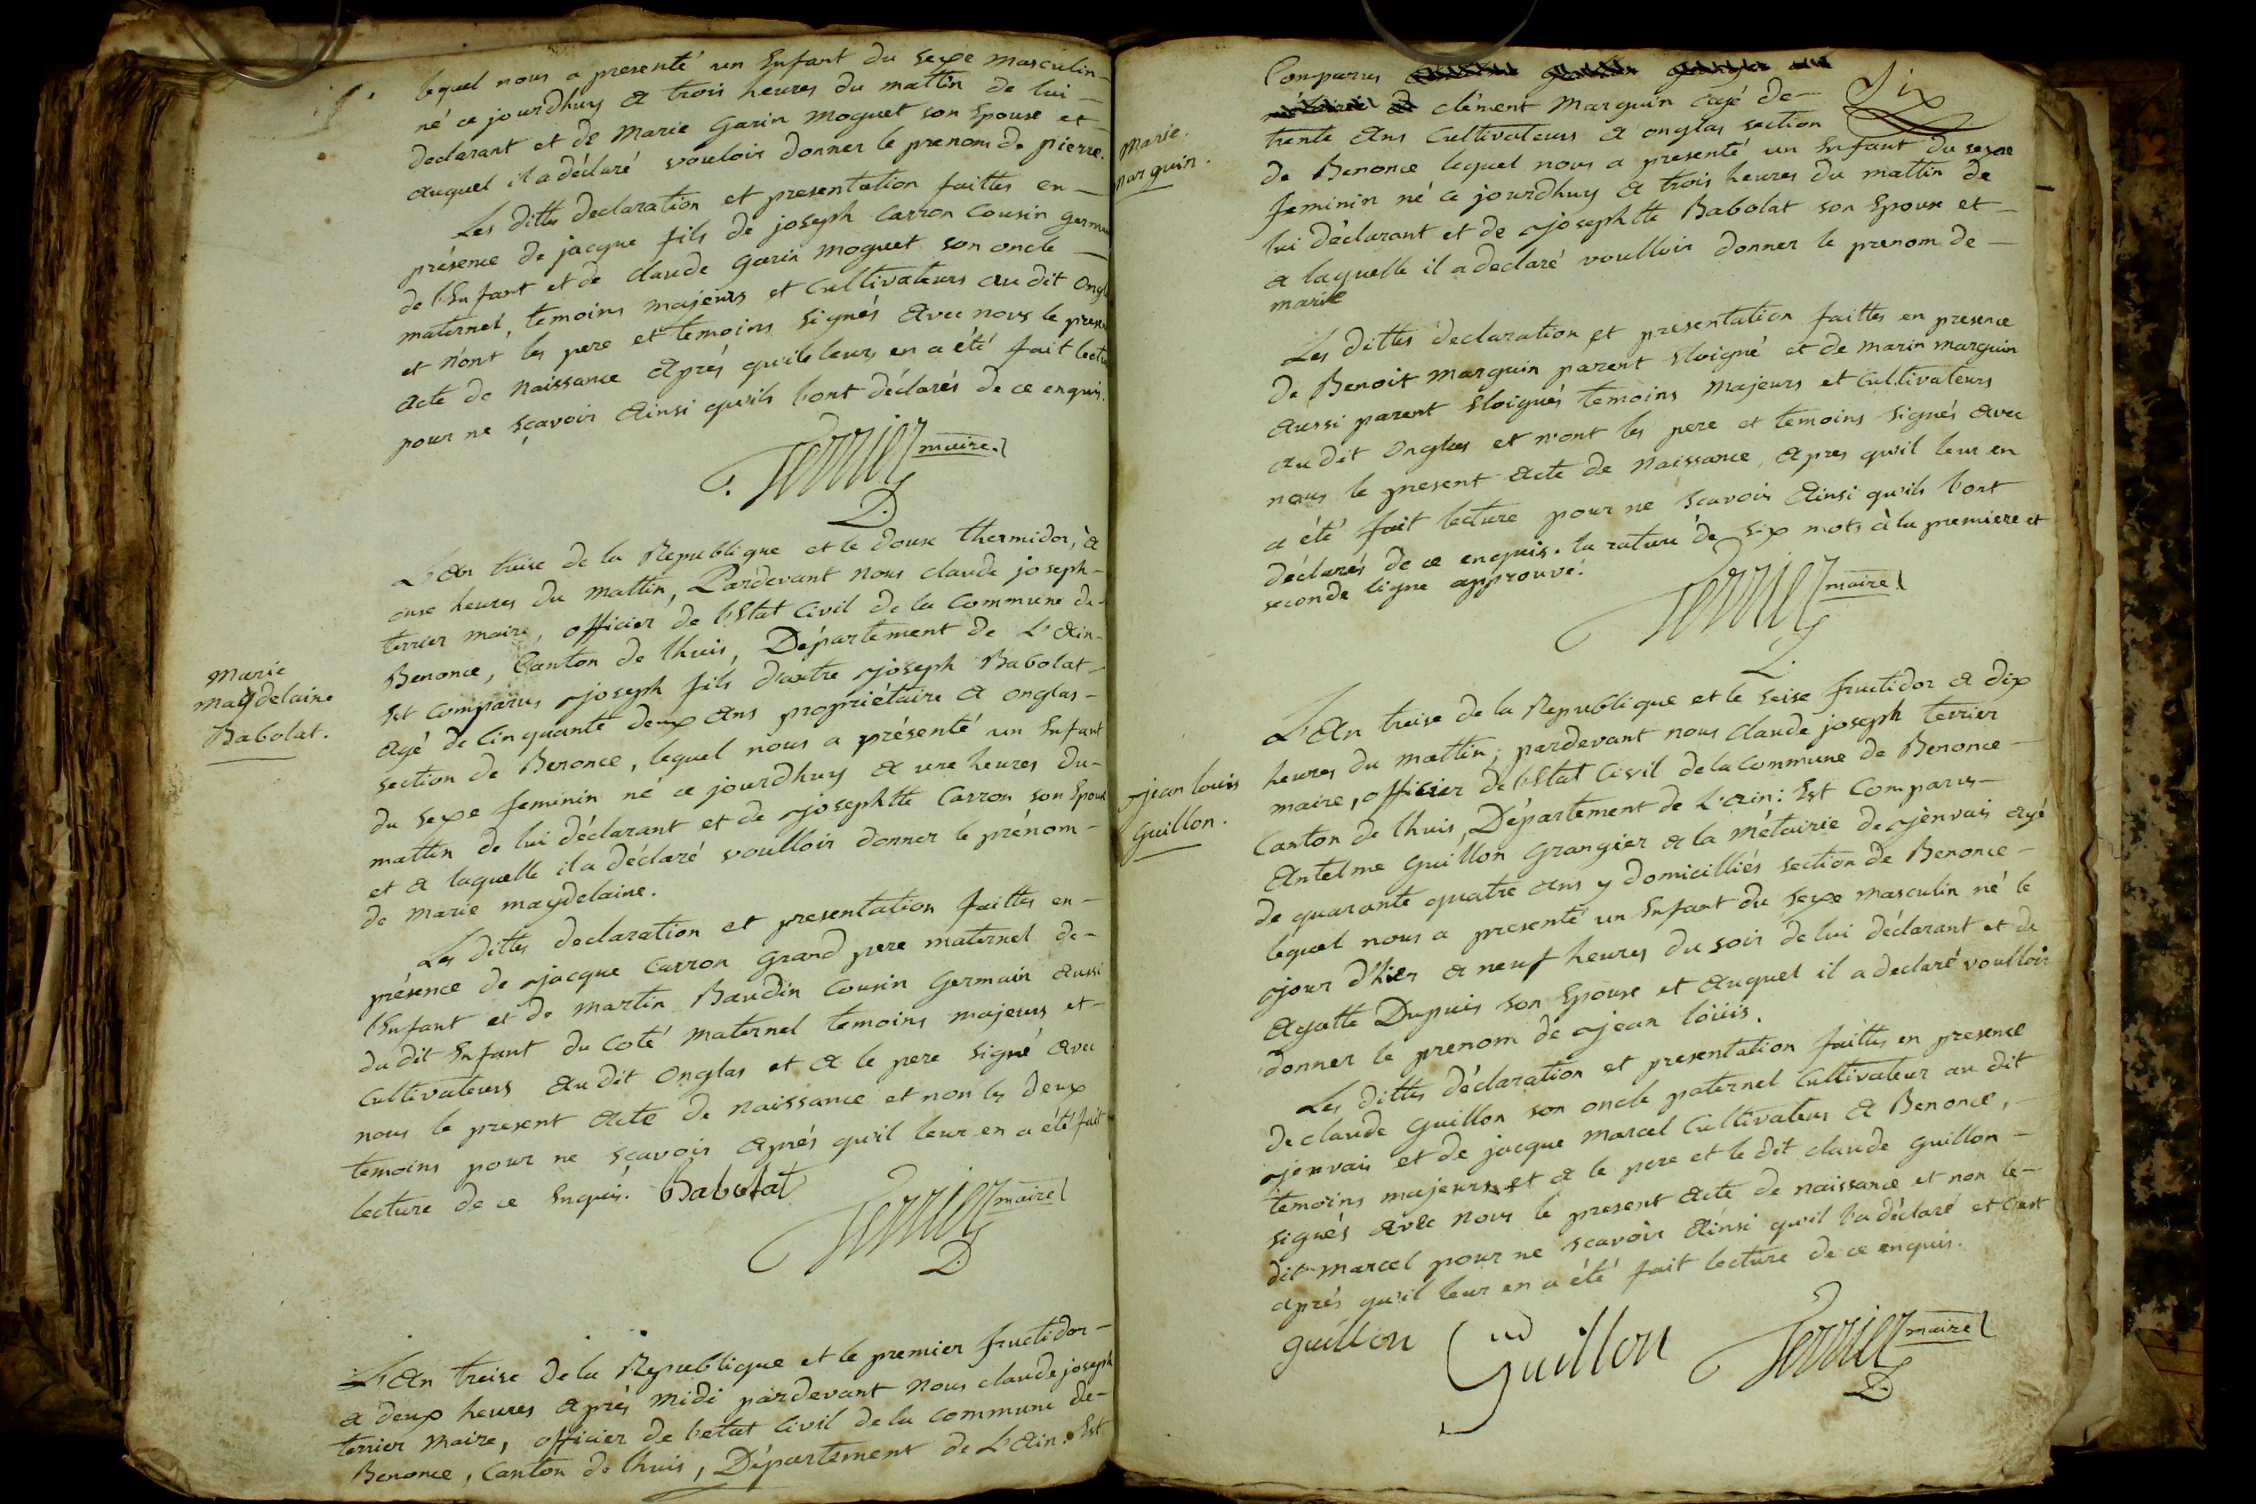 lequel nous a presenté un Enfant du sexe masculin
né ce jourdhuy a trois heures du mattin de lui
declarant et de Marie Garin Moguet son Epouse et
auquel il a déclaré vouloir donner le prenom de pierre.
Les dittes declaration et presentation faittes en
présence de jacque fils de joseph Carron Cousin germ
de l'Enfant et de claude Garin Moguet son oncle
maternel, temoins majeurs et Cultivateurs au dit Ong
et n'ont les pere et temoins signés avec nous le prese
acte de Naissance après qu'il leurs en a été fait lectu
pour ne sçavoir ainsi qu'ils l'ont déclarés de ce enquis.
Terrier maire.
L'an treise de la Republique et le douse thermidor, à
onse heures du mattin, Pardevant Nous claude joseph
terrier maire, officier de l'Etat Civil de la Commune de
Benonce, Canton de lhuis, Département de L'Ain
Est comparus joseph fils d'autre joseph Babolat
agé de Cinquante deux ans propriétaire a onglas
section de Benonce, lequel nous a présenté un Enfant
du sexe feminin né ce jourdhuy a une heures du
mattin de lui déclarant et de josephtte Carron son Epouse
et a laquelle il a déclaré voulloir donner le prénom
de Marie maydelaine.
Marie
maydelaine
Babolat.
Les dittes declaration et presentation faittes en
présence de jacque Carron Grand pere maternel de
l'Enfant et de martin Baudin Cousin Germain aussi
du dit Enfant du Coté maternel temoins majeurs et
Cultivateurs au dit Onglas et a le pere signé avec
nous le present acte de naissance et non les deux
temoins pour ne sçavoir après qu'il leur en a été fait
lecture de ce Enquis. Babolat
Terrier maire
L'an treise de la Republique et le premier fructidor
a deux heures après midi pardevant Nous claude joseph
terrier Maire, officier de l'etat Civil de la Commune de
Benonce, Canton de lhuis, Département de L'Ain. Est
Comparus
Six
clément Marguin agé de
trente ans Cultivateurs a onglas section
de Benonce lequel nous a presenté un Enfant du sexe
feminin né ce jourdhuy a trois heures du mattin de
lui déclarant et de josephtte Babolat son Epouse et
a laquelle il a declaré voulloir donner le prenom de
marie
Marie
Marguin.
Les dittes declaration et présentation faittes en presence
de Benoit Marguin parent Eloigné et de marin marguin
aussi parent Eloignés temoins Majeurs et Cultivateurs
au dit Onglas et n'ont les pere et temoins signés avec
nous le present acte de Naissance, apres qu'il leur en
a été fait lecture pour ne scavoir ainsi qu'ils l'ont
déclarés de ce enquis. la rature de six mots à la premiere et
seconde ligne approuvé.
Terrier maire
L'An treise de la Republique et le seise fructidor a dix
heures du mattin, pardevant nous Claude joseph terrier
maire, officier de l'Etat Civil de la Commune de Benonce
Canton de lhuis, Département de L'ain: Est Comparus
Antelme Guillon Grangier a la Métairie de jènvais agé
de quarante quatre ans y domicilliés section de Benonce
lequel nous a présenté un Enfant du sexe masculin né le
jour d'hier a neuf heures du soir de lui déclarant et de
agatte Dupuis son Epouse et auquel il a declaré voulloir
donner le prenom de jean loüis.
jean louis
Guillon.
Les dittes déclaration et presentation faittes en presence
de claude Guillon son oncle paternel Cultivateur au dit
jenvais et de jacque Marcel Cultivateur a Benonce,
temoins majeurs et a le pere et le dit claude guillon
signés avec Nous le present acte de naissance et non le
dit Marcel pour ne scavoir ainsi qu'il l'a déclaré et c'est
après qu'il leur en a été fait lecture de ce enquis.
guillon Guillon Terrier maire